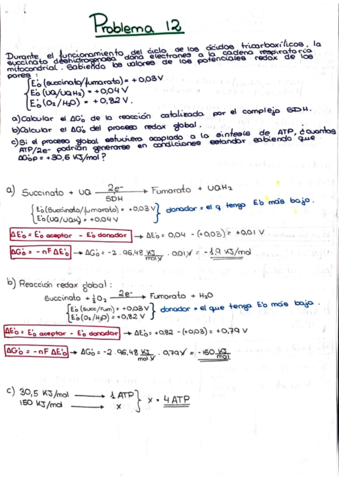 Problema 12
Durante el funcionamiento del ciclo de los ácidos tricarboxílicos, la
succinato deshidrogenasa dona electrones a la cadena respiratoria
mitocondrial. Sabiendo los valores de los potenciales redox de los
pares:
E'o (succinato/fumarato) = +0,03V
E'o (UQ/UQH2) = +0,04V
E'o (O2/H2O) = +0,82V.
a) Calcular el ΔG'o de la reacción catalizada por el complejo SDH.
b) Calcular el ΔG'o del proceso redox global.
c) Si el proceso global estuviera acoplado a la síntesis de ATP, ¿cuántos
ATP/2e- podrían generarse en condiciones estandar sabiendo que
ΔG'op = +30,5 KJ/mol?
a) Succinato + UQ 2e- SDH → Fumarato + UQH2
E'o (Succinato/fumarato) = +0,03V
E'o (UQ/UQH2) = +0,04V
donador = el q tenga E'o más bajo.
ΔE'o = E'o aceptor - E'o donador → ΔE'o = 0,04 - (+0,03) = +0,01 V
ΔG'o = -nFΔE'o → ΔG'o = -2 · 96,48 KJ/mol·V · 0,01V = -1,9 KJ/mol
b) Reacción redox global:
Succinato + ½O2 2e- → Fumarato + H2O
E'o (succ/fum) = +0,03V
E'o (O2/H2O) = +0,82V
donador = el que tenga E'o más bajo.
ΔE'o = E'o aceptor - E'o donador → ΔE'o = +0,82 - (+0,03) = +0,79V
ΔG'o = -nFΔE'o → ΔG'o = -2 · 96,48 KJ/mol·V · 0,79V = -150 KJ/mol
c) 30,5 KJ/mol → 1 ATP
150 KJ/mol → x
x = 4 ATP